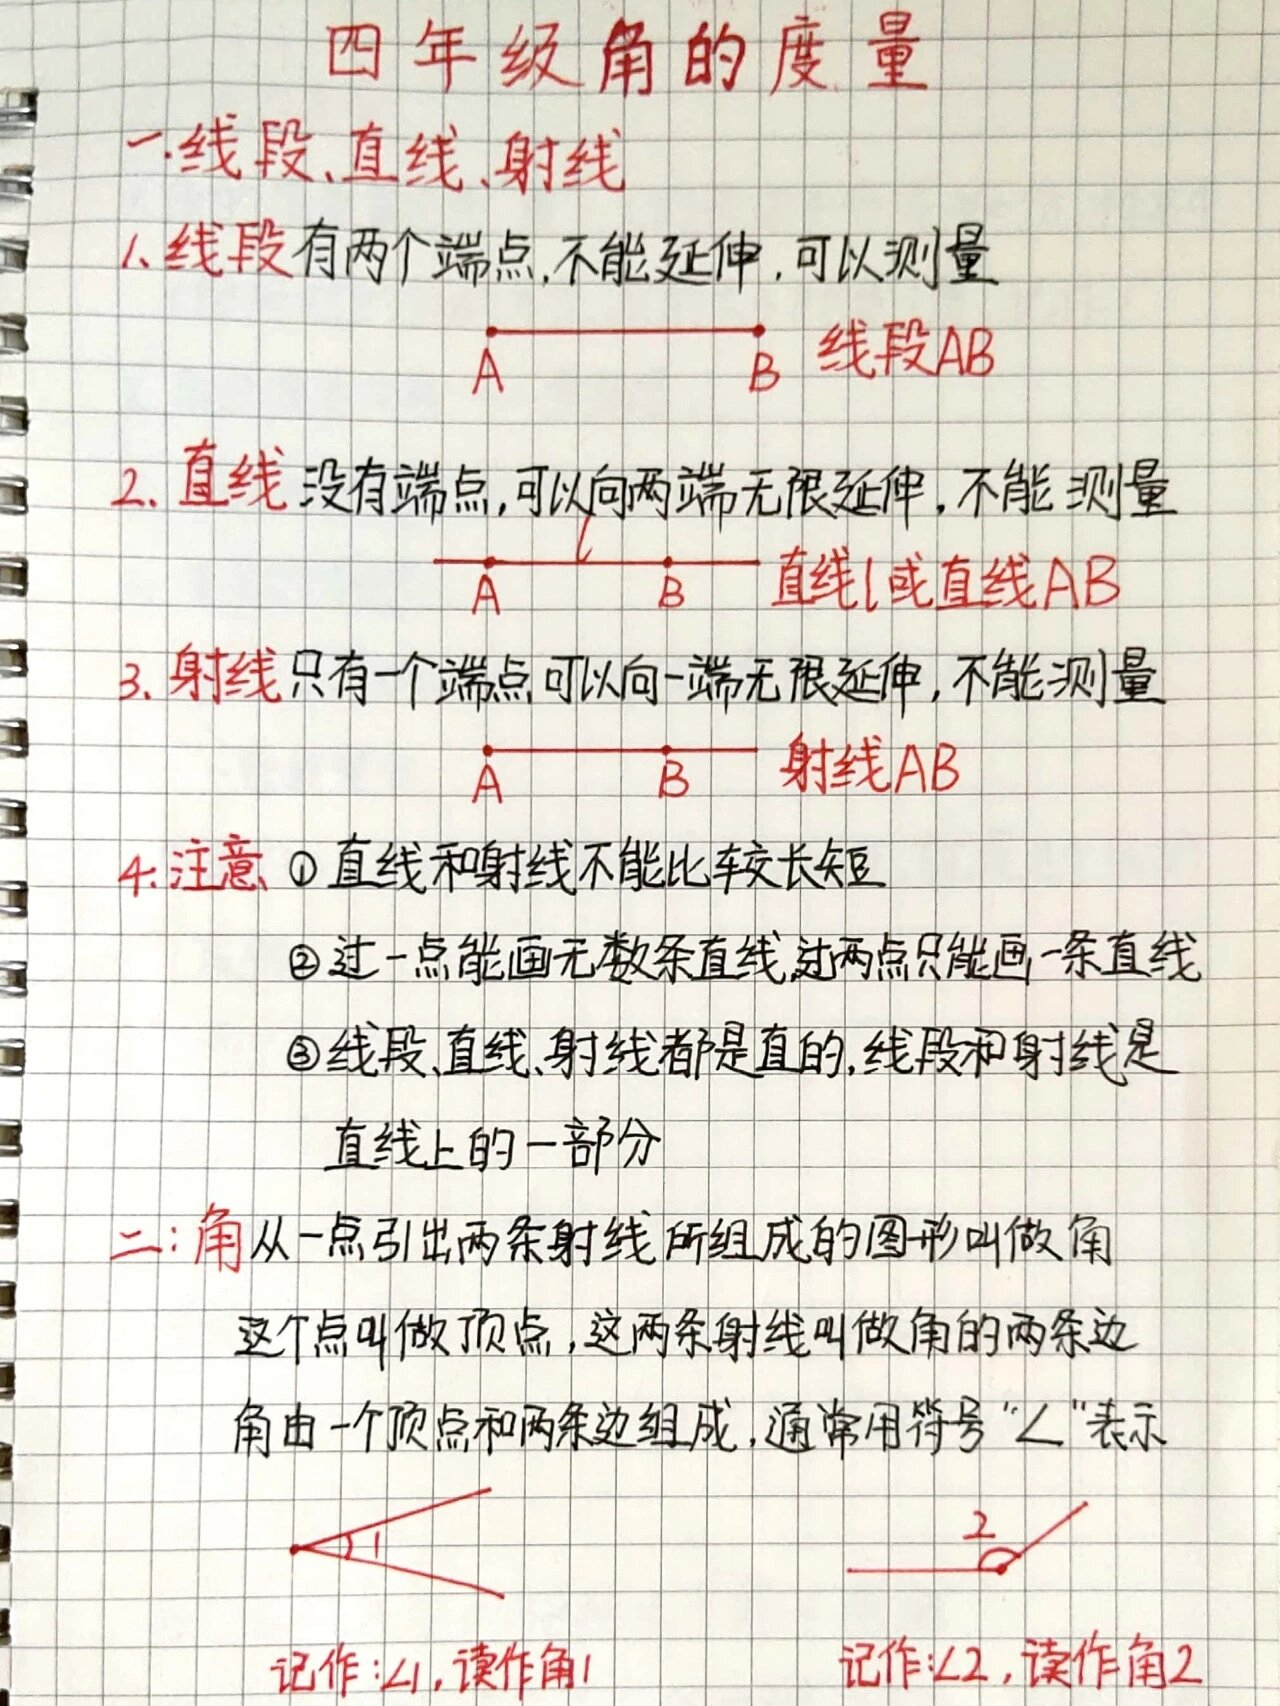 四年级角的度量
一.线段、直线、射线
1.线段有两个端点,不能延伸,可以测量
A B 线段AB
2.直线没有端点,可以向两端无限延伸,不能测量
l
A B 直线l或直线AB
3.射线只有一个端点,可以向一端无限延伸,不能测量
A B 射线AB
4.注意 ①直线和射线不能比较长短
②过一点能画无数条直线,过两点只能画一条直线
③线段、直线、射线都是直的,线段和射线是
直线上的一部分
二:角从一点引出两条射线所组成的图形叫做角
这个点叫做顶点,这两条射线叫做角的两条边
角由一个顶点和两条边组成,通常用符号“∠”表示
1 2
记作:∠1,读作角1 记作:∠2,读作角2